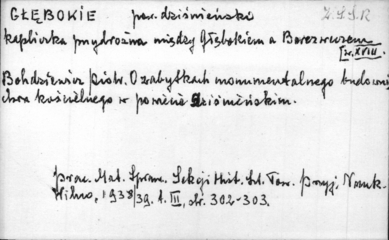 GŁĘBOKIE pow. dziśnieński Z.S.S.R
kapliczka przydrożna między Głębokiem a Berezweczem
[w. XVIII.
Bohdziewicz Piotr. O zabytkach monumentalnego budowni-
ctwa kościelnego w powiecie dziśnieńskim.
Prac. Mat. Spraw. Sekcji Hist. Szt. Tow. Przyj. Nauk.
Wilno, 1938/39. t. III, str. 302-303.